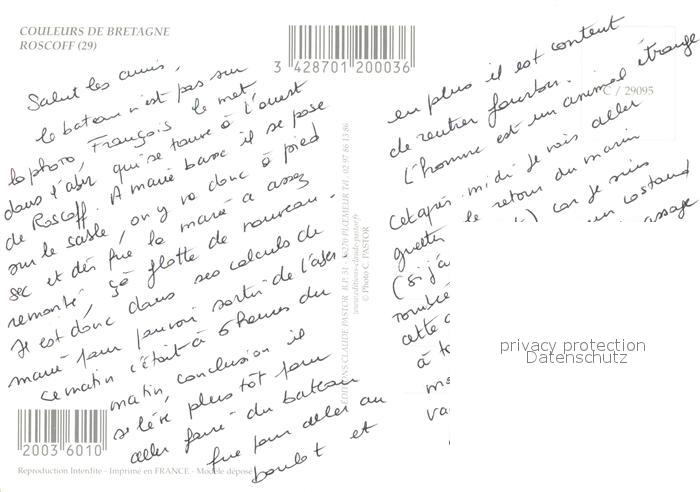 COULEURS DE BRETAGNE
ROSCOFF (29)
3 428701 200036
C / 29095
Salut les amis,
le bateau n'est pas sur
la photo, François le met
dans l'abri qui se trouve à l'ouest
de Roscoff. A marée basse il se pose
sur le sable, on y va donc à pied
sec et dès que la marée a assez
remonté, ça flotte de nouveau.
Il est donc dans ses calculs de
marée pour pouvoir sortir de l'
ce matin c'était à 6 heures du
matin, conclusion il
se lève plus tôt pour
aller faire du bateau
que pour aller au
boulot et
en plus il est content
de rentrer
L'homme est un animal étrange
Cet après-midi je vais aller
guetter le retour du marin
(si j'a) car je suis
tombée un costand
cette passage
à t
ma
va
ÉDITIONS CLAUDE PASTOR B.P. 31 56270 PLOEMEUR Tél 02 97 86 13 86
www.editions-claude-pastor.fr
© Photo C. PASTOR
2003 6010
Reproduction Interdite - Imprimé en FRANCE - Modèle déposé
privacy protection
Datenschutz